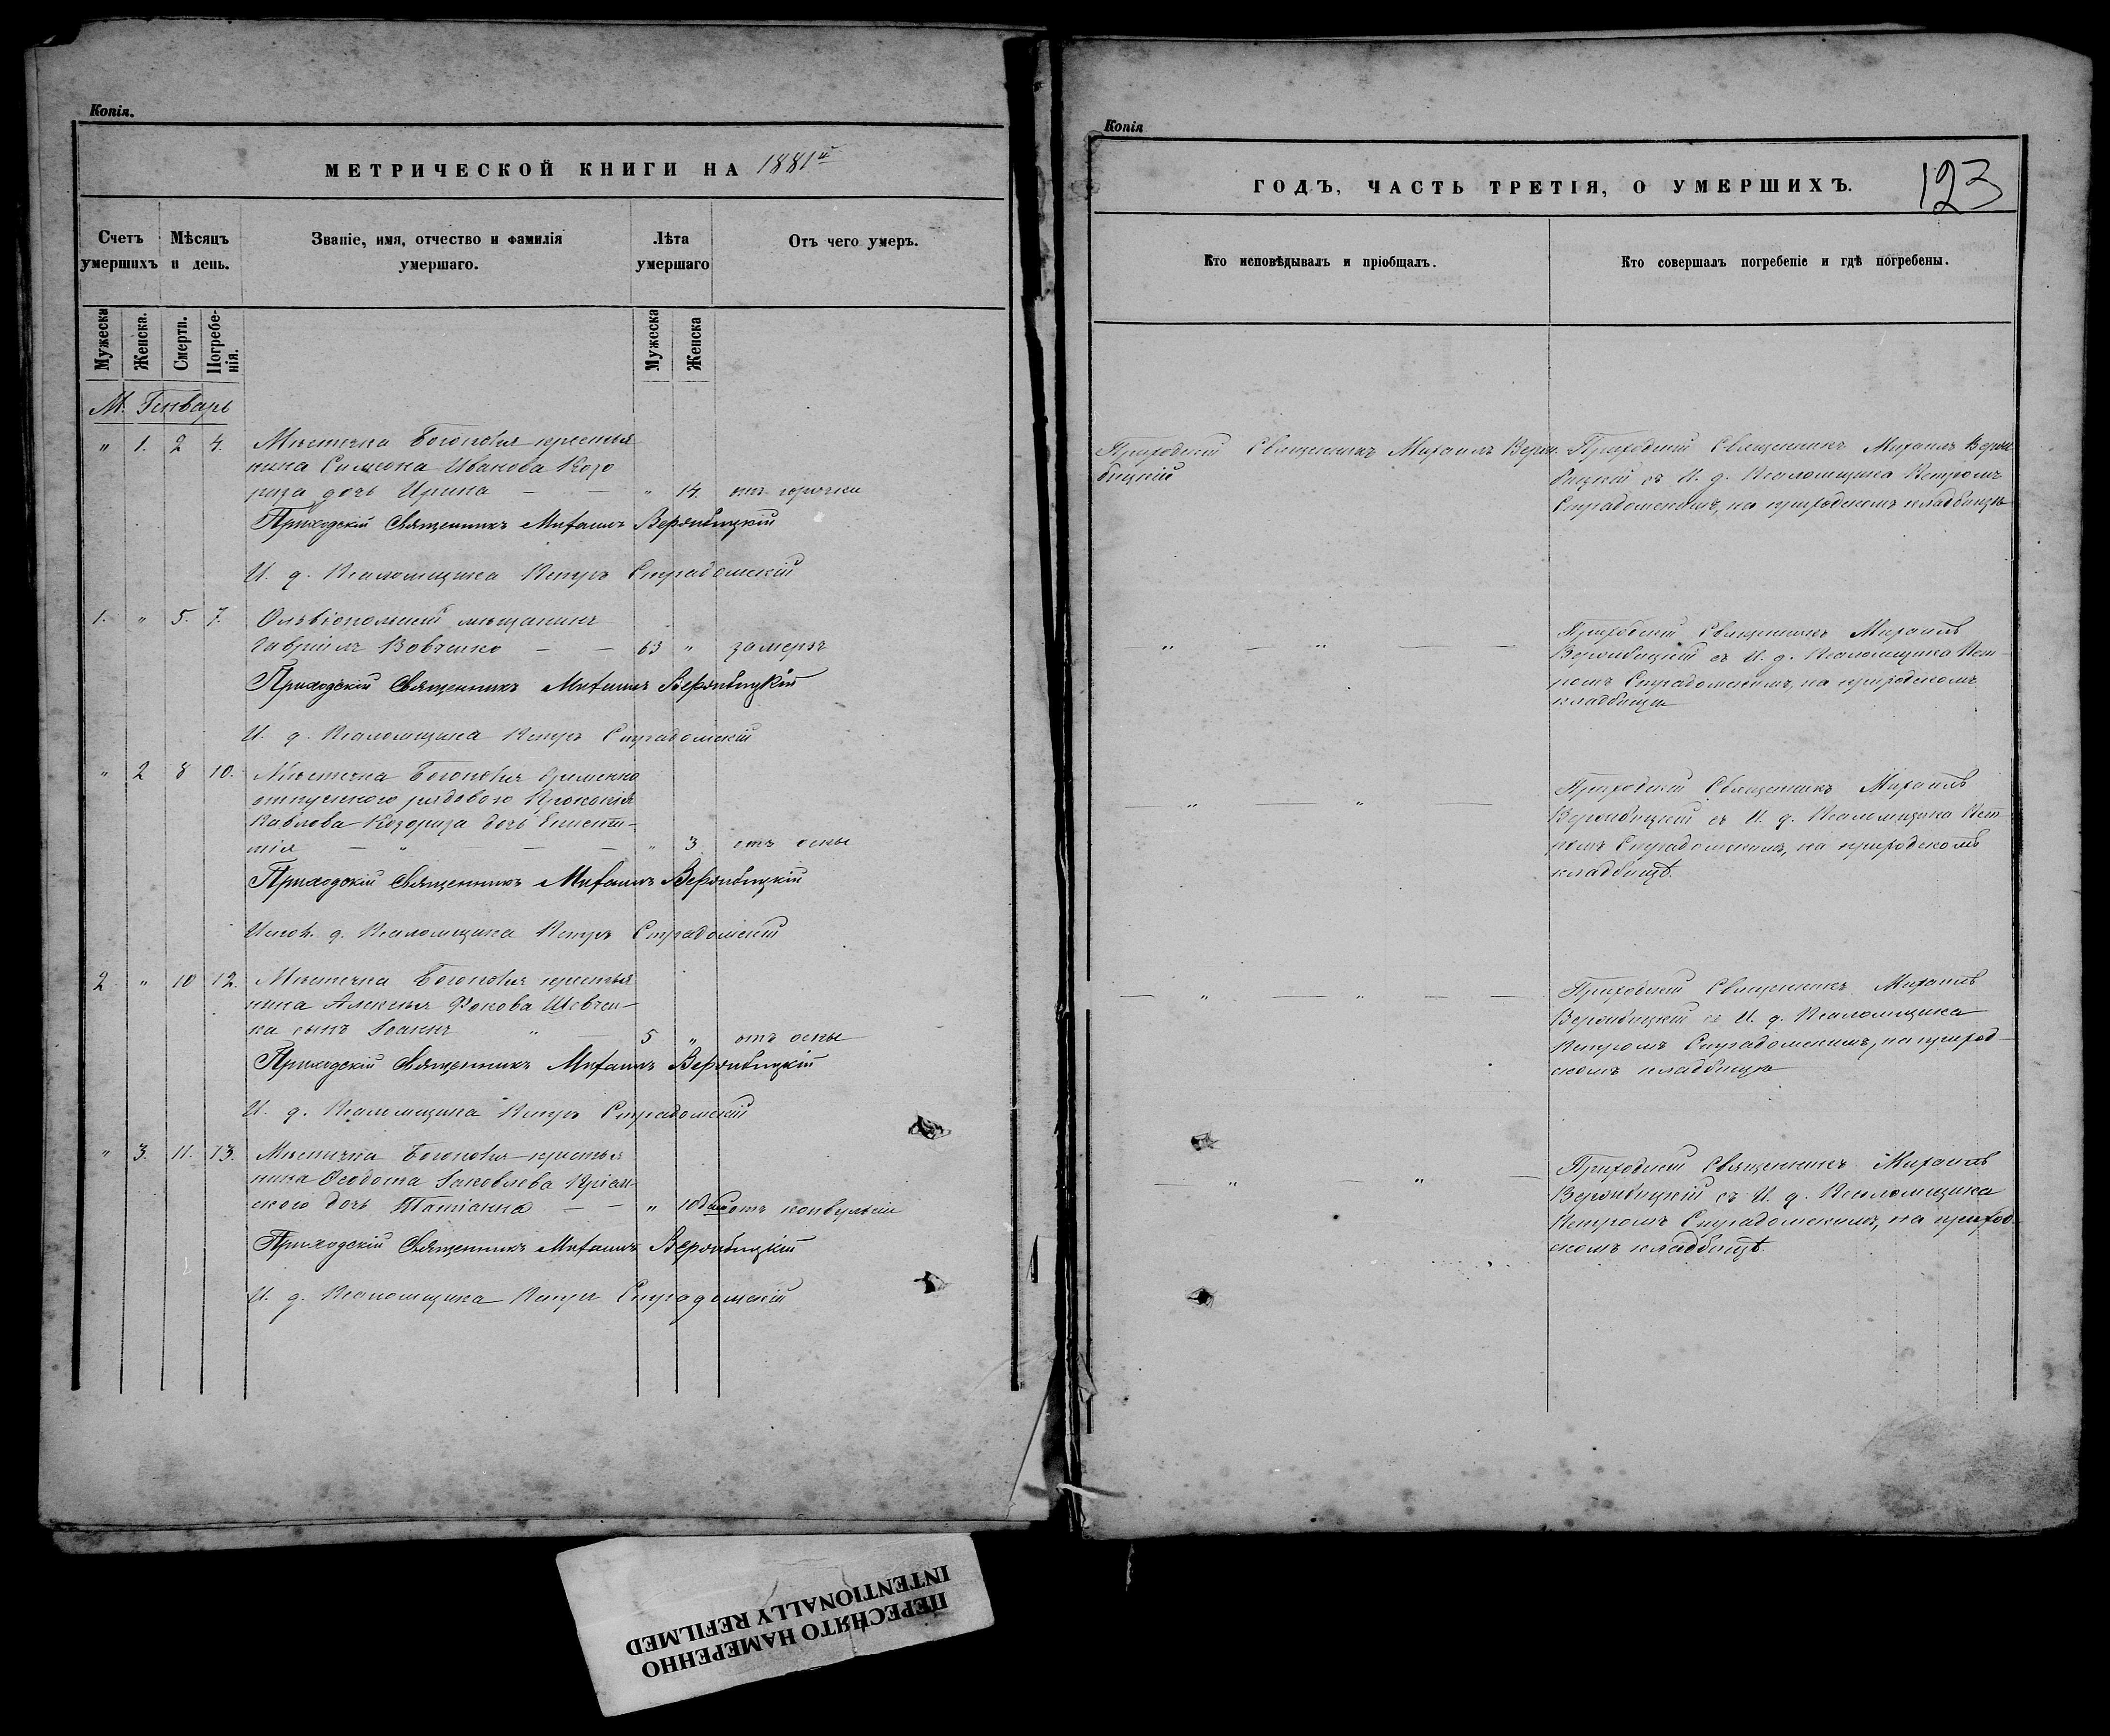 Копія.
МЕТРИЧЕСКОЙ КНИГИ НА 1881й
Счетъ умершихъ
Мѣсяцъ и день.
Званіе, имя, отчество и фамилія умершаго.
Лѣта умершаго
Отъ чего умеръ.
Мужеска
Женска.
Смерти.
Погребенія.
Мужеска
Женска
М. Генварь
" 1. 2 4. Мѣстечка Богополя крестья
нина Симеона Иванова Козо
риза дочь Ирина — — " 14. отъ горячки
Приходскій Священникъ Михаилъ Вербицкій
И. д. Псаломщика Петръ Страдомскій
1. " 5. 7. Ольвіопольскій мѣщанинъ
Гавріилъ Вовченко — — 63 " замерзъ
Приходскій Священникъ Михаилъ Вербицкій
И. д. Псаломщика Петръ Страдомскій
" 2 8 10. Мѣстечка Богополя временно
отпускного рядового Прокопія
Павлова Козориза дочь
— " — — " 3. отъ оспы
Приходскій Священникъ Михаилъ Вербицкій
Испр. д. Псаломщика Петръ Страдомскій
2 " 10 12. Мѣстечка Богополя крестья
нина Алексѣя Фокова Шевчен-
ка сынъ Іоаннъ " — 5 " отъ оспы
Приходскій Священникъ Михаилъ Вербицкій
И. д. Псаломщика Петръ Страдомскій
" 3. 11. 13. Мѣстечка Богополя крестья
нина Ѳеодота Іаковлева
ского дочь Татіанна — — " 10 отъ конвульсіи
Приходскій Священникъ Михаилъ Вербицкій
И. д. Псаломщика Петръ Страдомскій
Копія
ГОДЪ, ЧАСТЬ ТРЕТІЯ, О УМЕРШИХЪ.
123
Кто исповѣдывалъ и пріобщалъ.
Кто совершалъ погребеніе и гдѣ погребены.
Приходскій Священникъ Михаилъ
бицкій
Приходскій Священникъ Михаилъ
бицкій съ И. д. Псаломщика Петромъ
Страдомскимъ, на приходскомъ кладбищѣ
— " — " — —
Приходскій Священникъ Михаилъ
Вербицкій съ И. д. Псаломщика Пет-
ромъ Страдомскимъ, на приходскомъ
кладбищѣ
— " — " —
Приходскій Священникъ Михаилъ
Вербицкій съ И. д. Псаломщика Пет-
ромъ Страдомскимъ, на приходскомъ
кладбищѣ.
— " — " — —
Приходскій Священникъ Михаилъ
Вербицкій съ И. д. Псаломщика
Петромъ Страдомскимъ, на приход-
скомъ кладбищѣ
— " — " —
Приходскій Священникъ Михаилъ
Вербицкій съ И. д. Псаломщика
Петромъ Страдомскимъ, на приход-
скомъ кладбищѣ.
ПЕРЕСНЯТО НАМЕРЕННО
INTENTIONALLY REFILMED